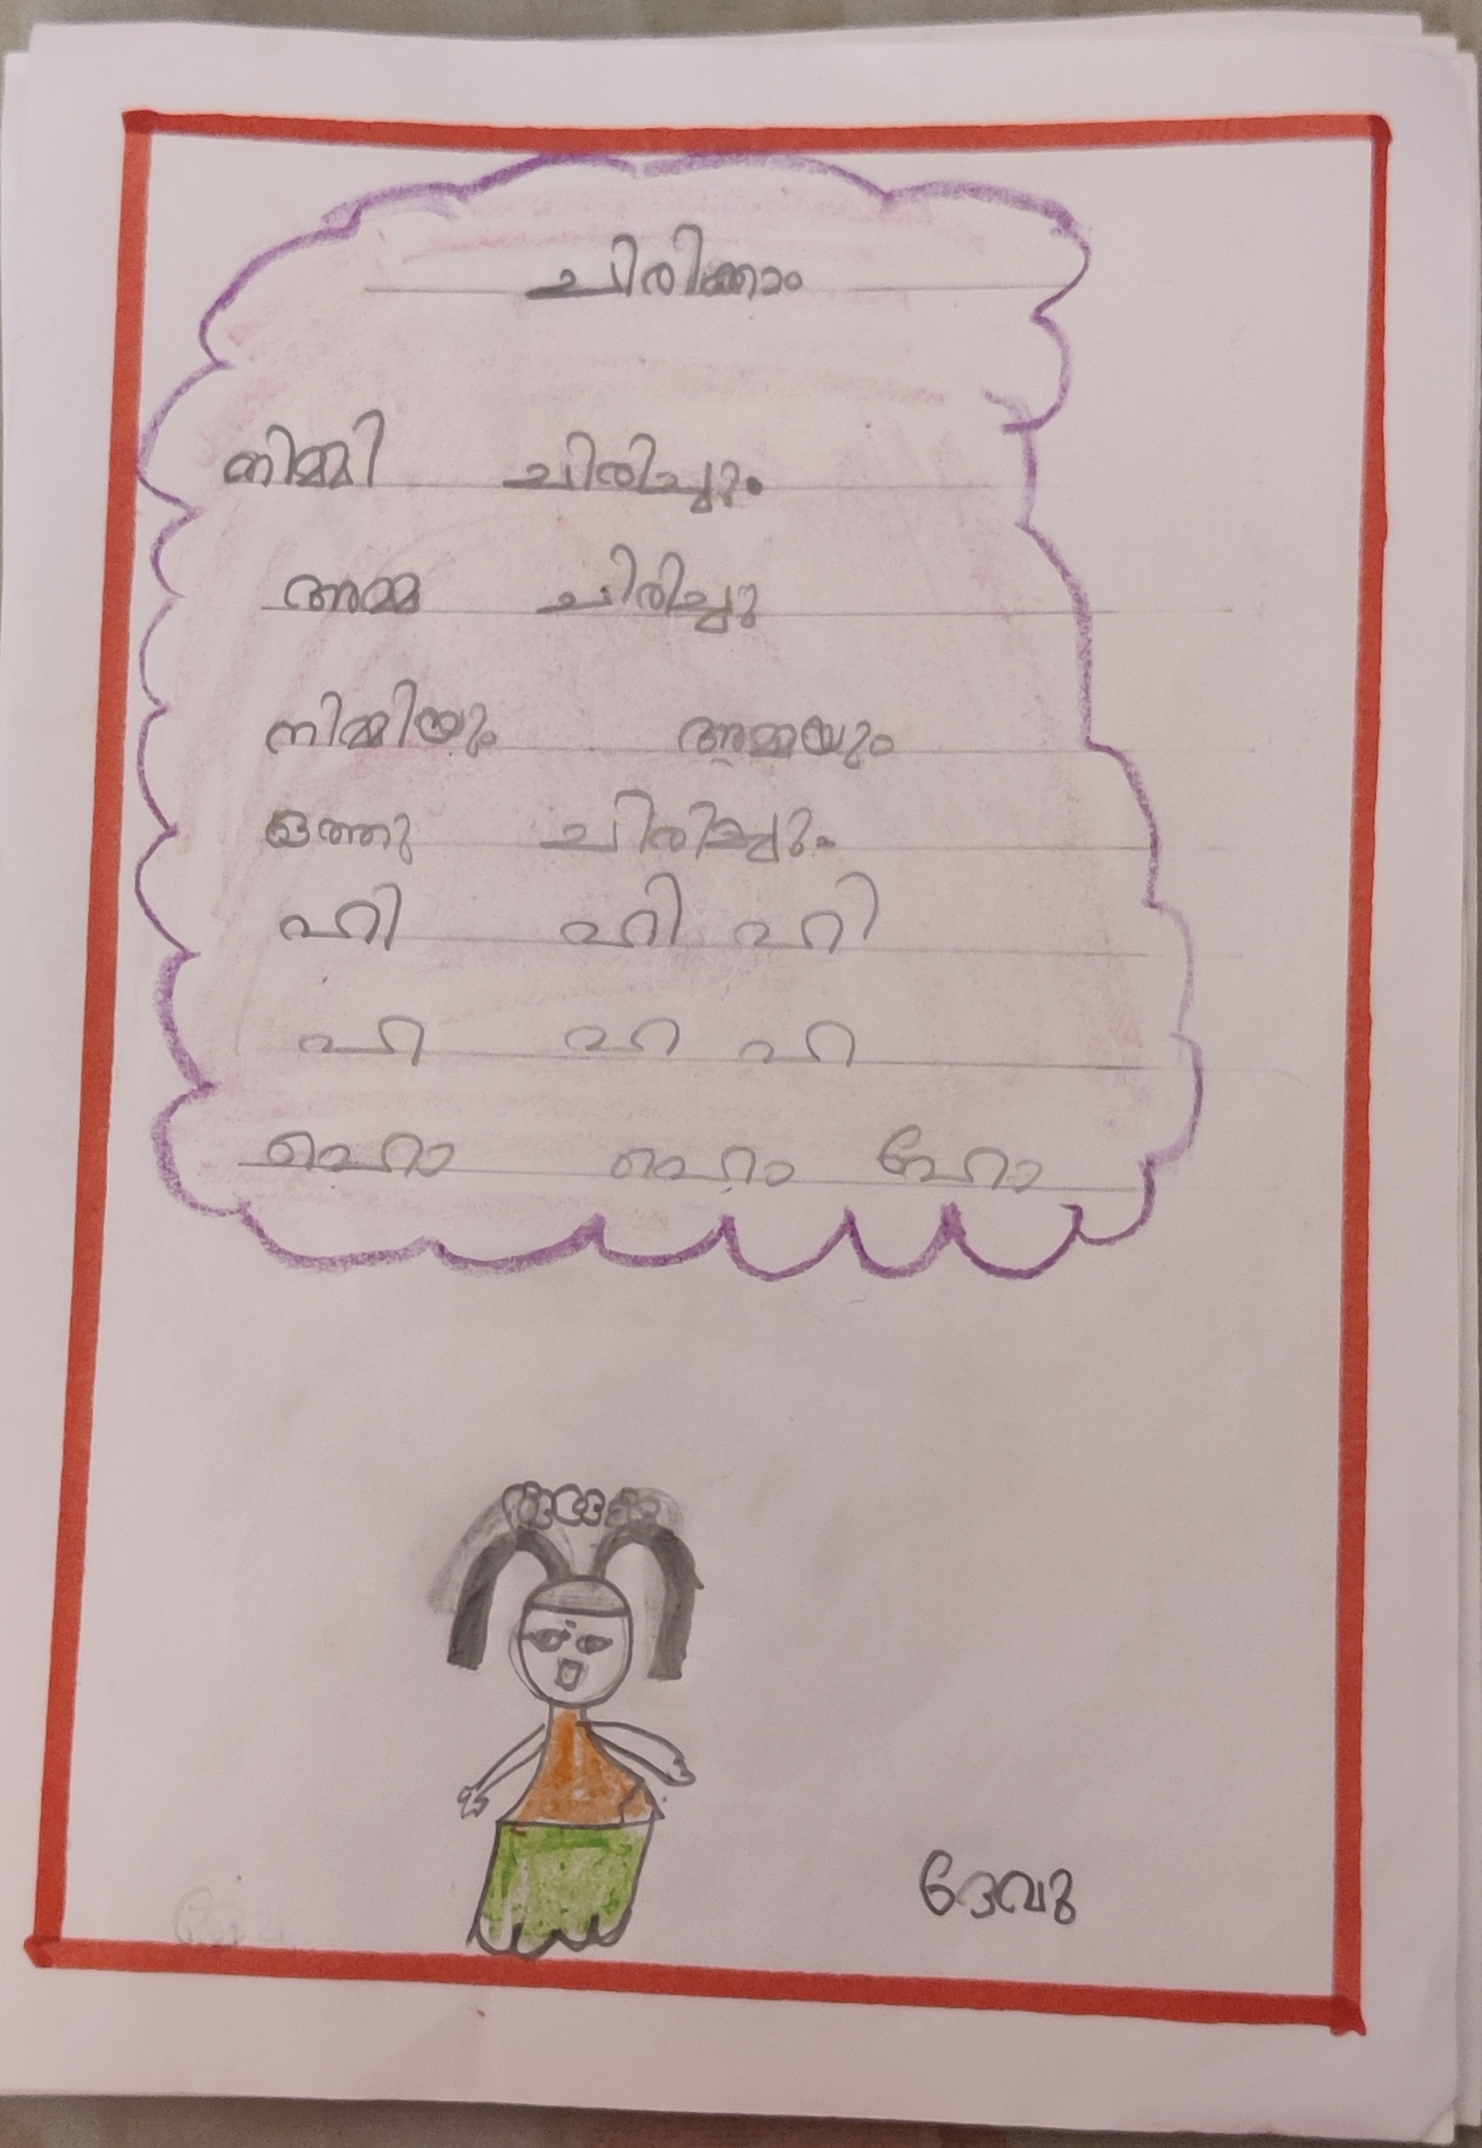 ചിരിക്കാം
നിമ്മി ചിരിച്ചു.
അമ്മ ചിരിച്ചു
നിമ്മിയും അമ്മയും
ഒത്തു ചിരിച്ചു.
ഹി ഹി ഹി
ഹ ഹ ഹ
ഹൊ ഹൊ ഹോ
ദേവു